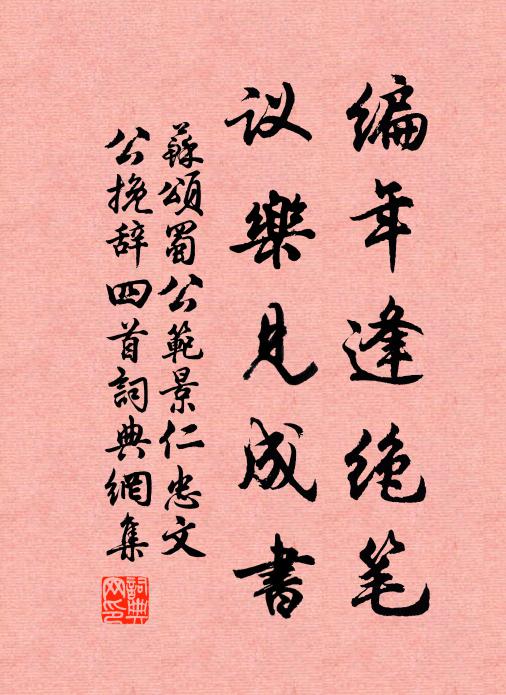 编年逢绝笔
议樂見成書
蘇頌蜀公範景仁忠文
公挽辞四首詞典網集
詞典网印